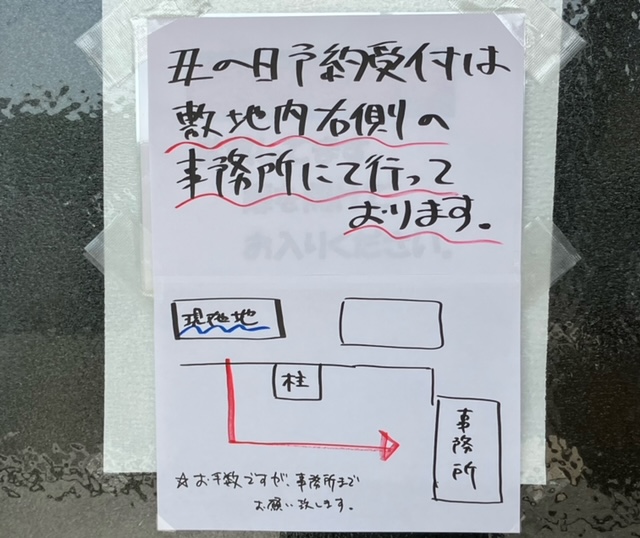 丑の日予約受付は
敷地内右側の
事務所にて行って
おります。
現在地
柱
事務所
☆お手数ですが、事務所まで
お願い致します。